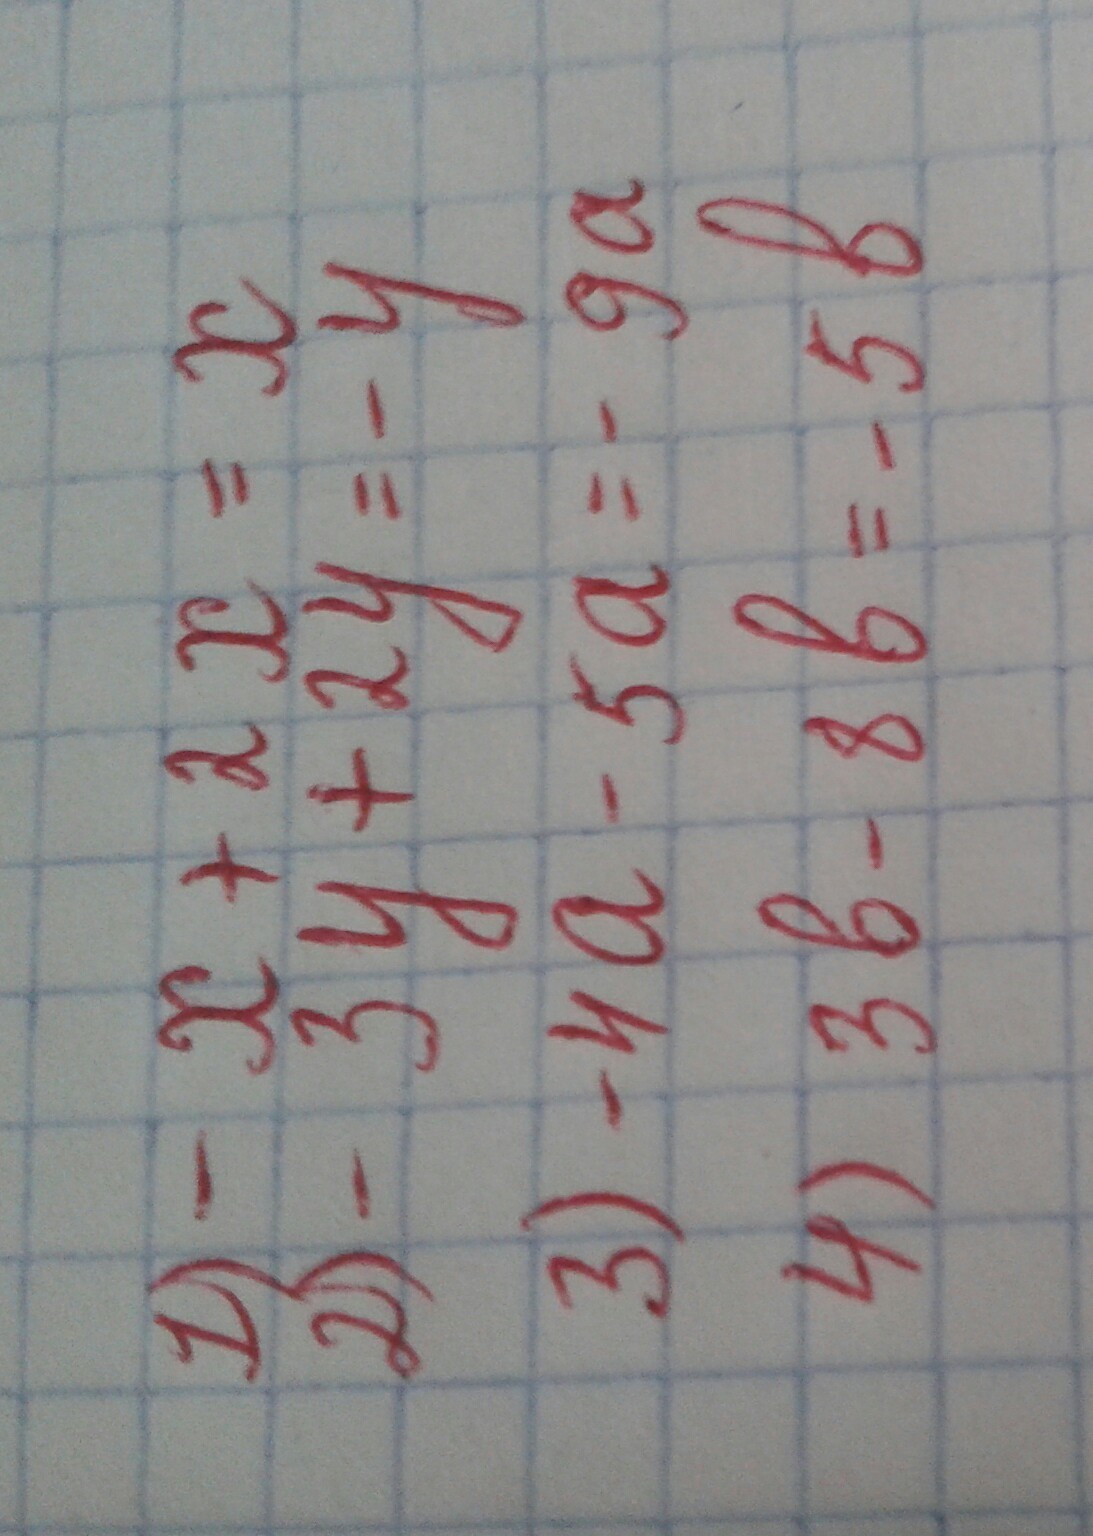 1) - x + 2x = x
2) - 3y + 2y = - y
3) - 4a - 5a = - 9a
4) 3b - 8b = - 5b